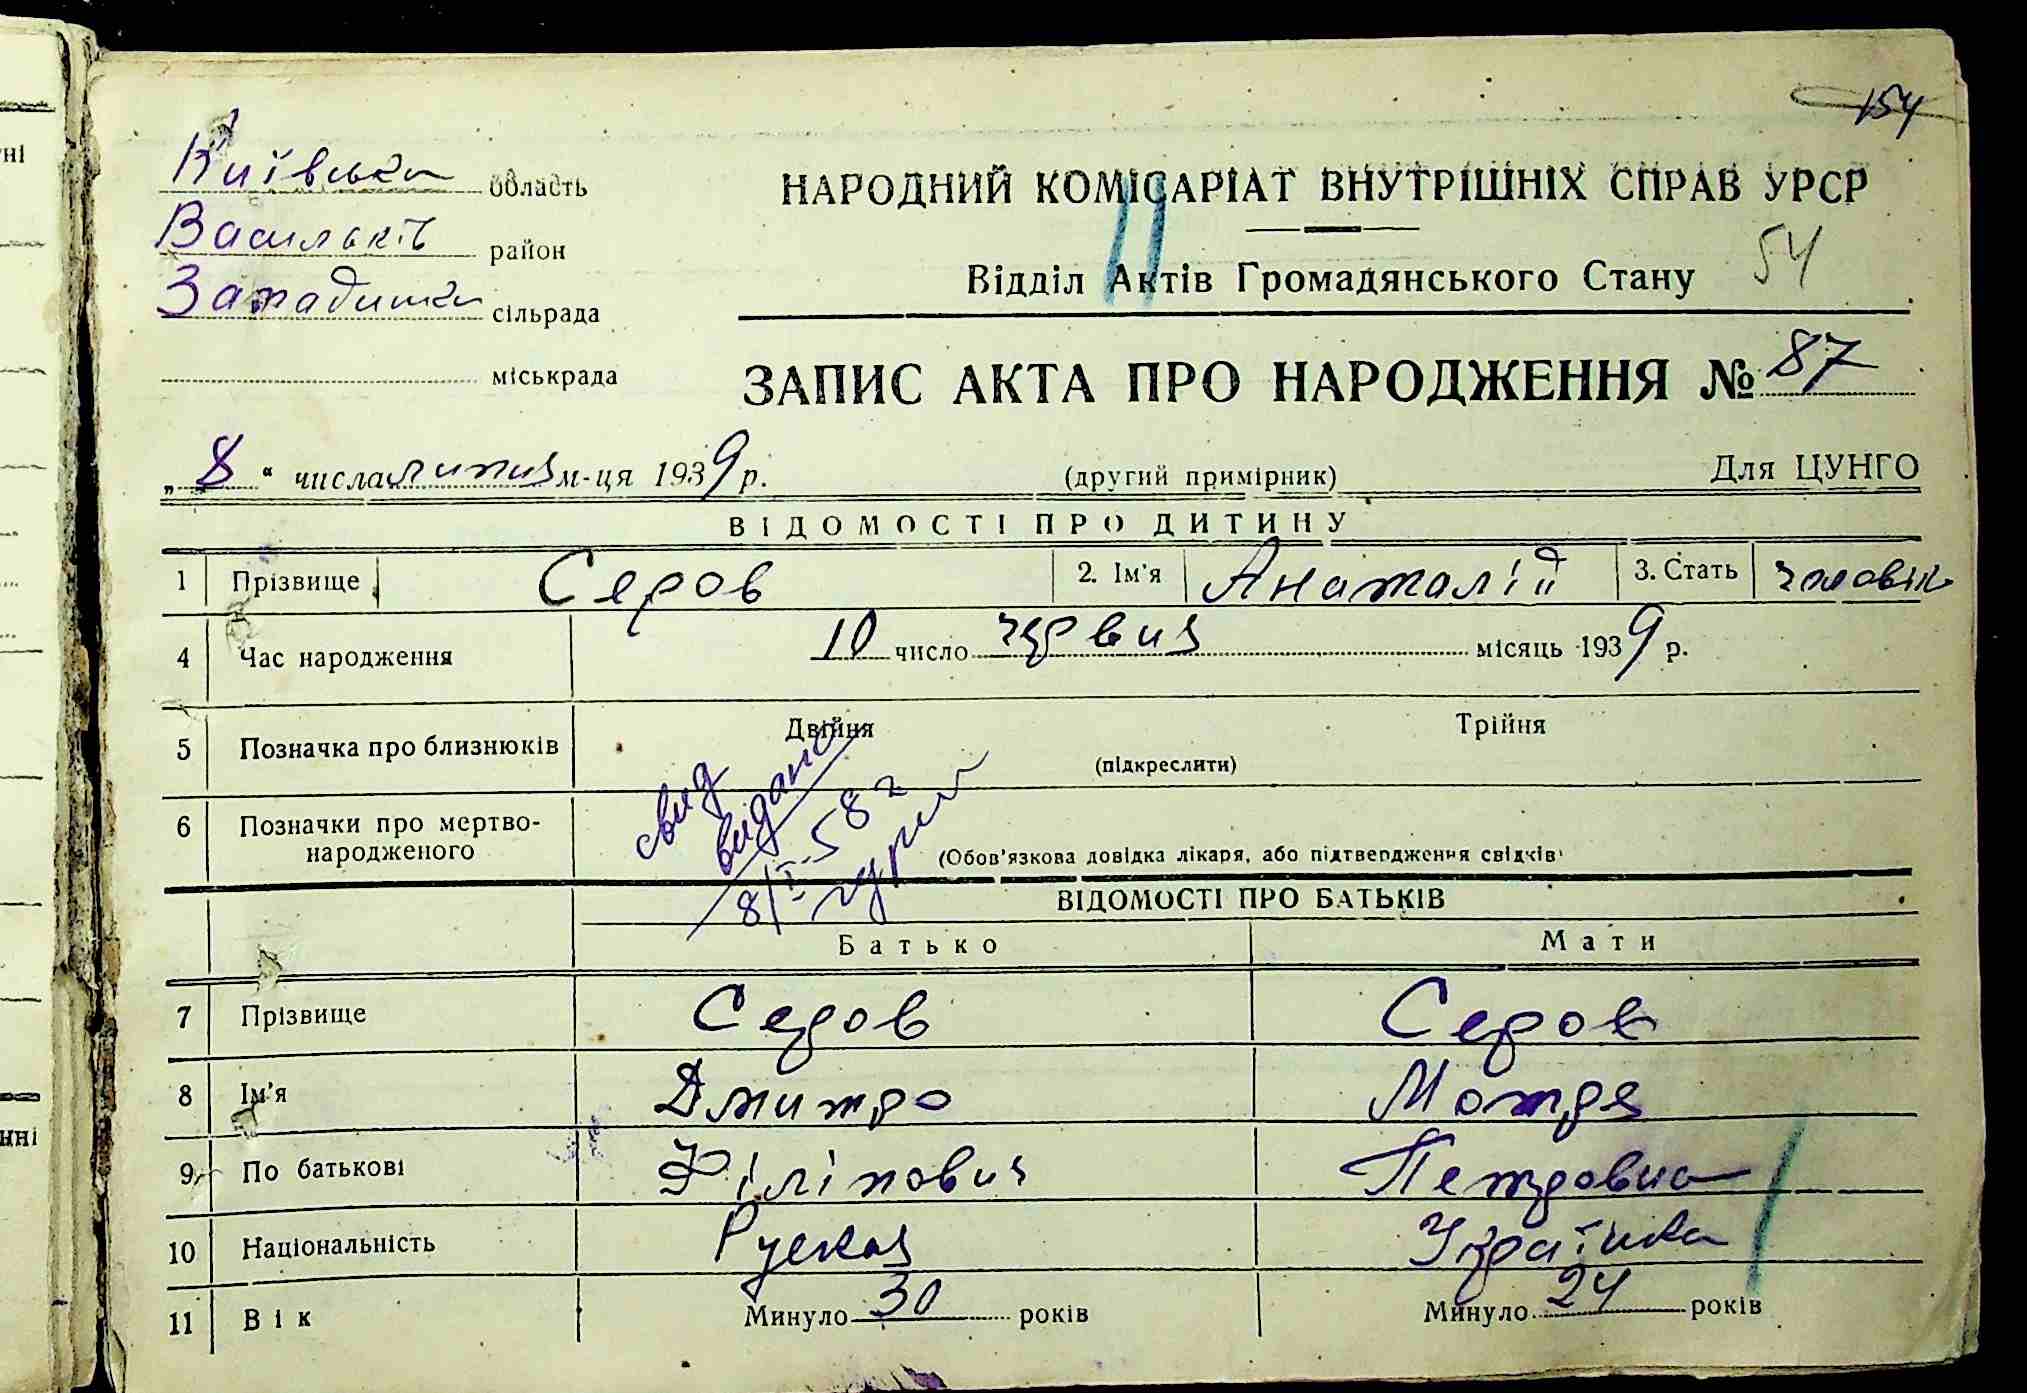 154
Київська область
Васильків район
Западинка сільрада
міськрада
НАРОДНИЙ КОМІСАРІАТ ВНУТРІШНІХ СПРАВ УРСР
Відділ Актів Громадянського Стану
54
ЗАПИС АКТА ПРО НАРОДЖЕННЯ № 87
„ 8 “ числа липня м-ця 1939 р.
(другий примірник)
Для ЦУНГО
ВІДОМОСТІ ПРО ДИТИНУ
1 Прізвище Серов 2. Ім'я Анаталій 3. Стать
4 Час народження 10 число червня місяць 1939 р.
5 Позначка про близнюків Двійня Трійня
(підкреслити)
6 Позначки про мертво-
народженого
(Обов'язкова довідка лікаря, або підтвердження свідків)
свид
видано
8/I-58 г
ВІДОМОСТІ ПРО БАТЬКІВ
Батько Мати
7 Прізвище Серов Серов
8 Ім'я Дмитро Мотря
9 По батькові Філіпович Петровна
10 Національність Руская Українка
11 Вік Минуло 30 років Минуло 24 років
ні
нні